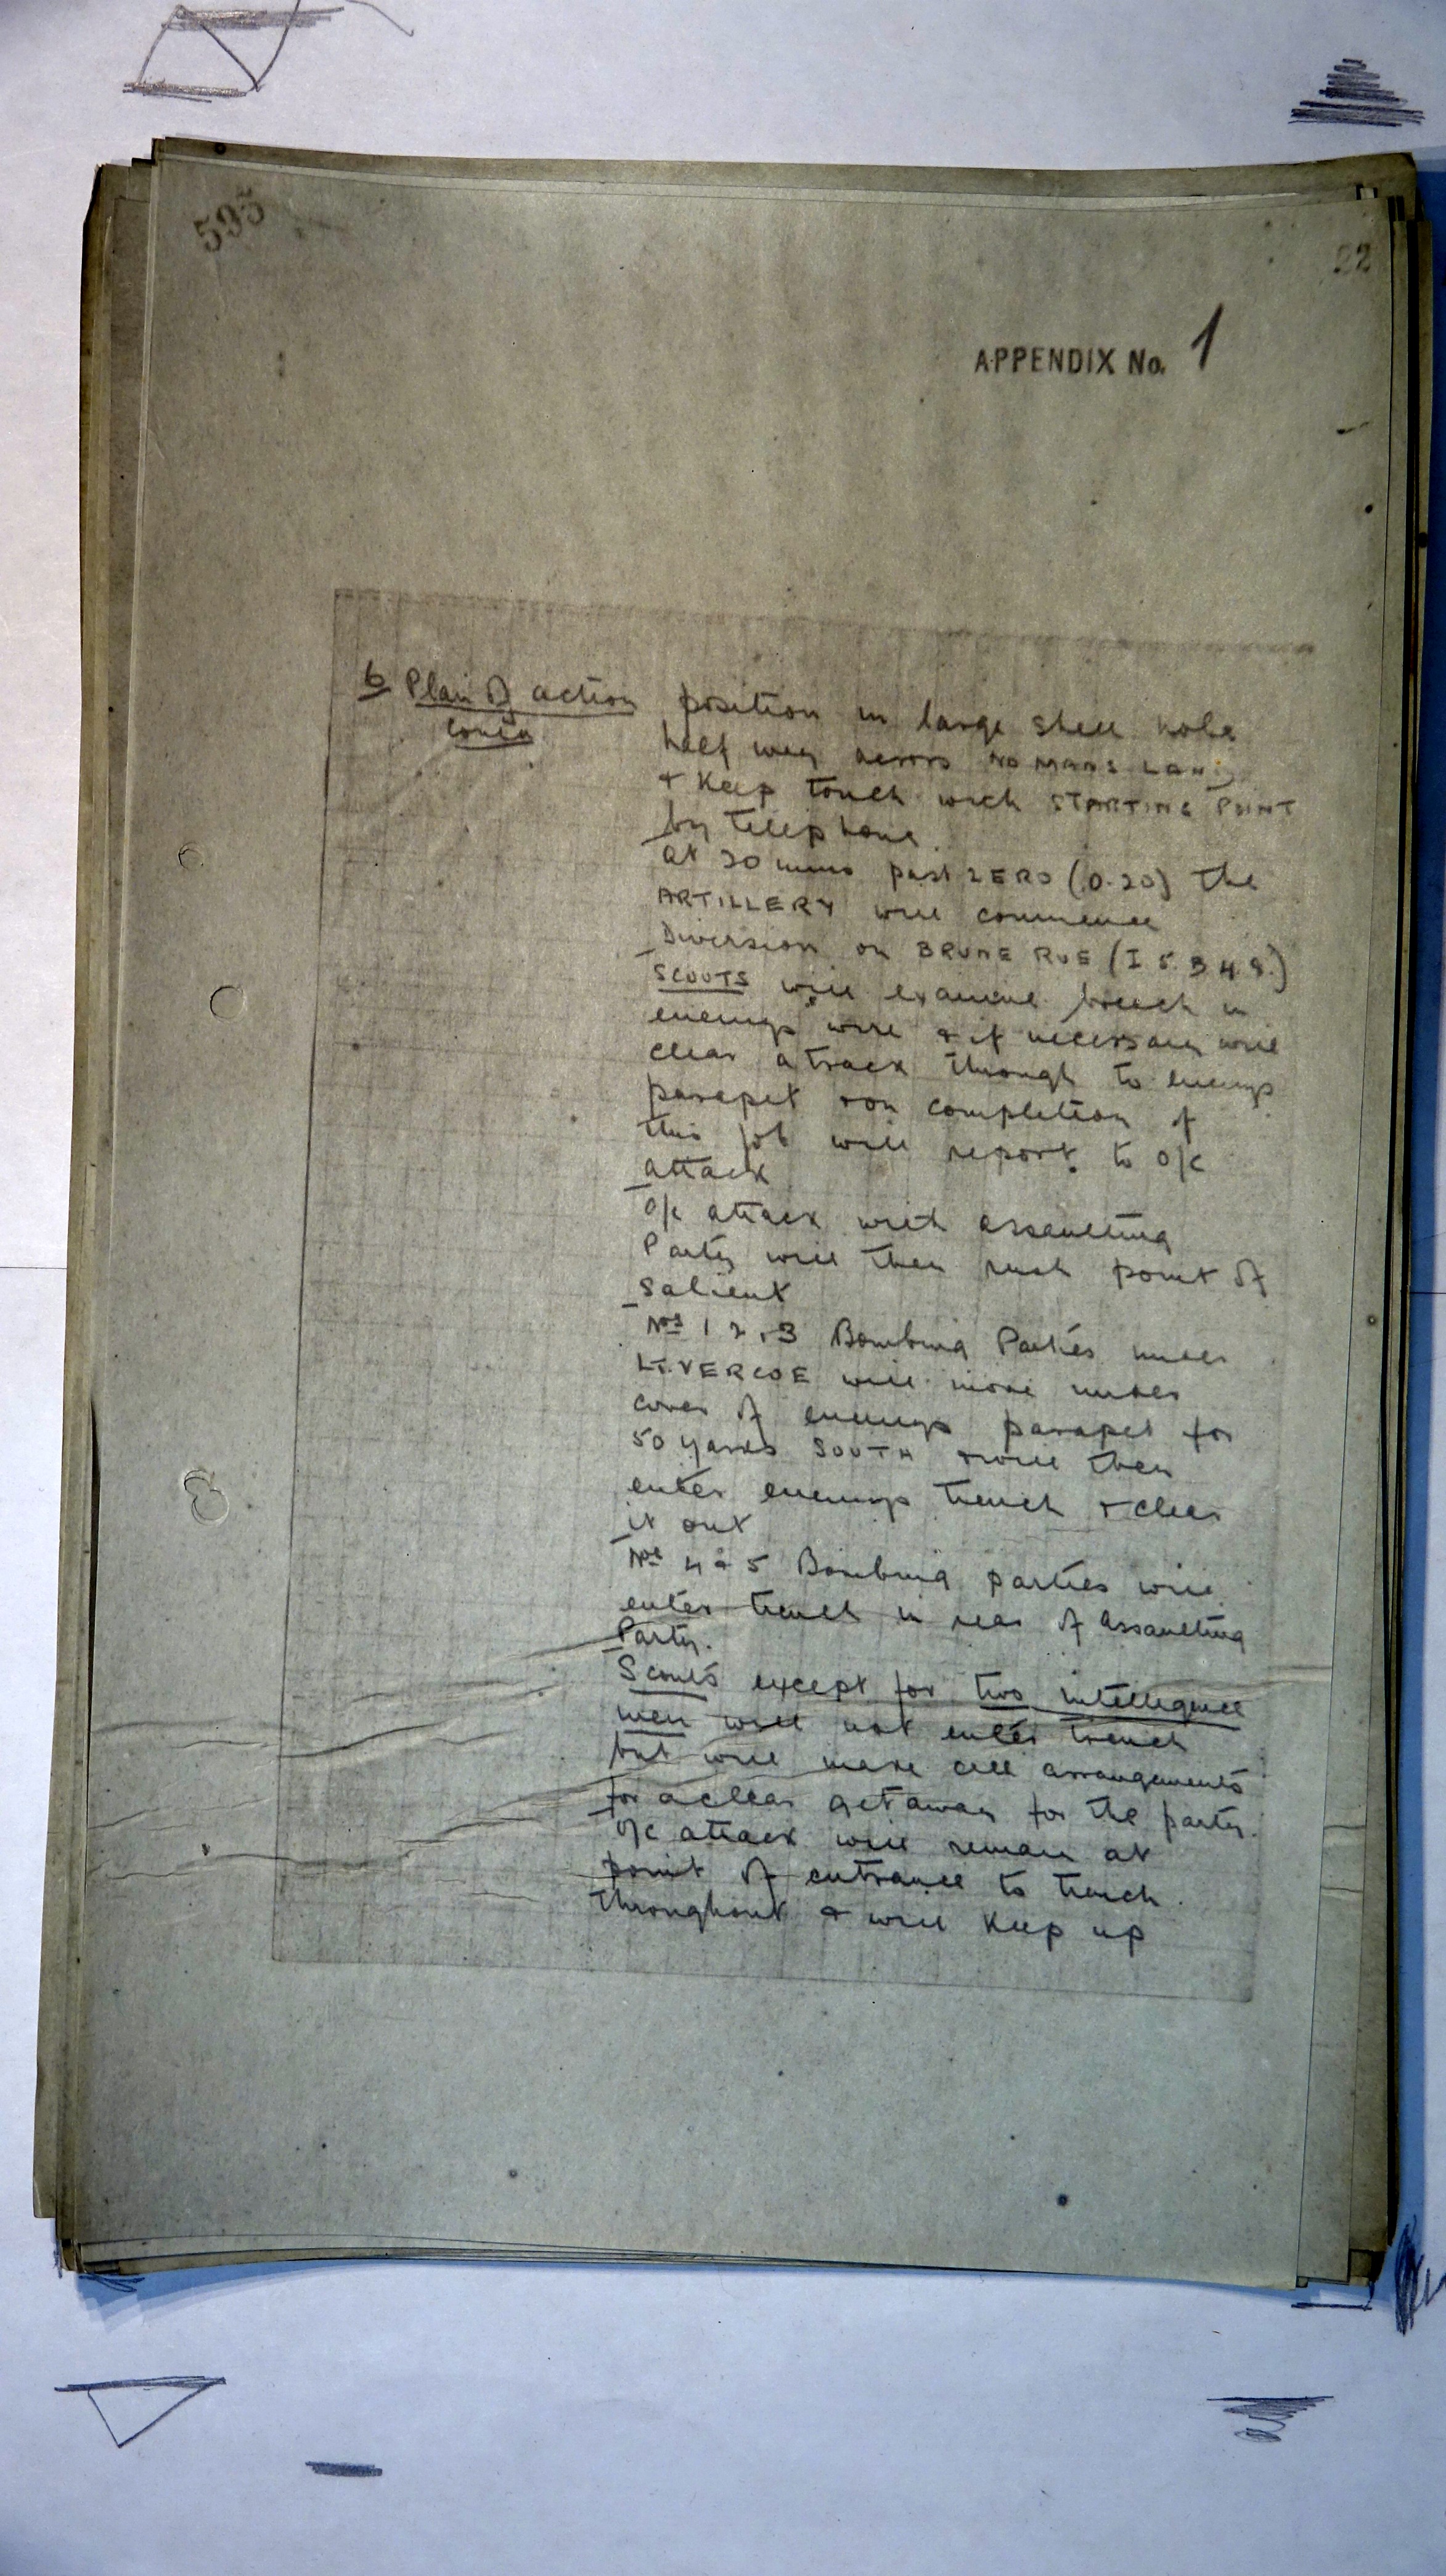 595
22
APPENDIX No. 1
6 Plan of action
contd
position in large shell hole
half way across NO MANS LAND
& keep touch with STARTING POINT
by telephone.
at 20 mins past ZERO (0.20) the
ARTILLERY will commence
Diversion on BRUNE RUE (I 5. B 4.9.)
SCOUTS will examine breech in
enemys wire & if necessary will
clear a track through to enemys
parapet & on completion of
this job will report to O/C
attack
O/C attack with assaulting
Party will then rush point of
salient
Nos 1 2 & 3 Bombing Parties under
LT. VERCOE will move under
cover of enemys parapet for
50 yards SOUTH & will then
enter enemys trench & clear
it out
Nos 4 & 5 Bombing parties will
enter trench in rear of assaulting
Party.
Scouts except for two intelligence
men will not enter trench
but will make all arrangements
for a clear getaway for the party.
O/C attack will remain at
point of entrance to trench
throughout & will keep up